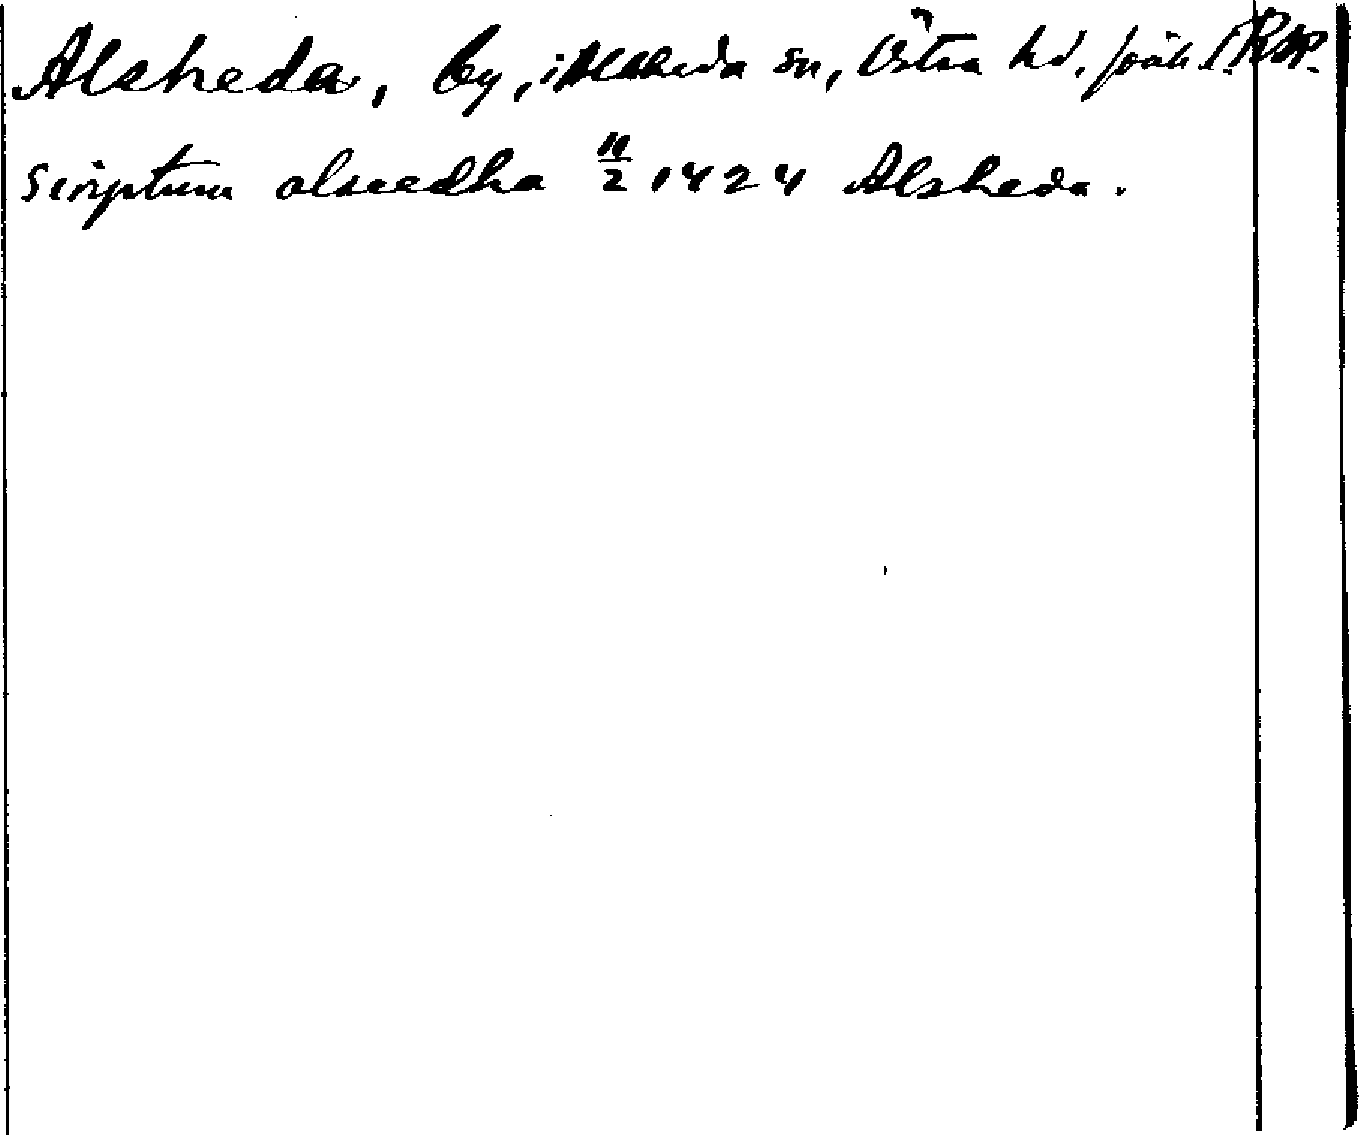 Alsheda, by, i Alsheda sn, Östra hd, Jönk. l. RAP.
Scriptum alseedha 11/2 1424 Alsheda.